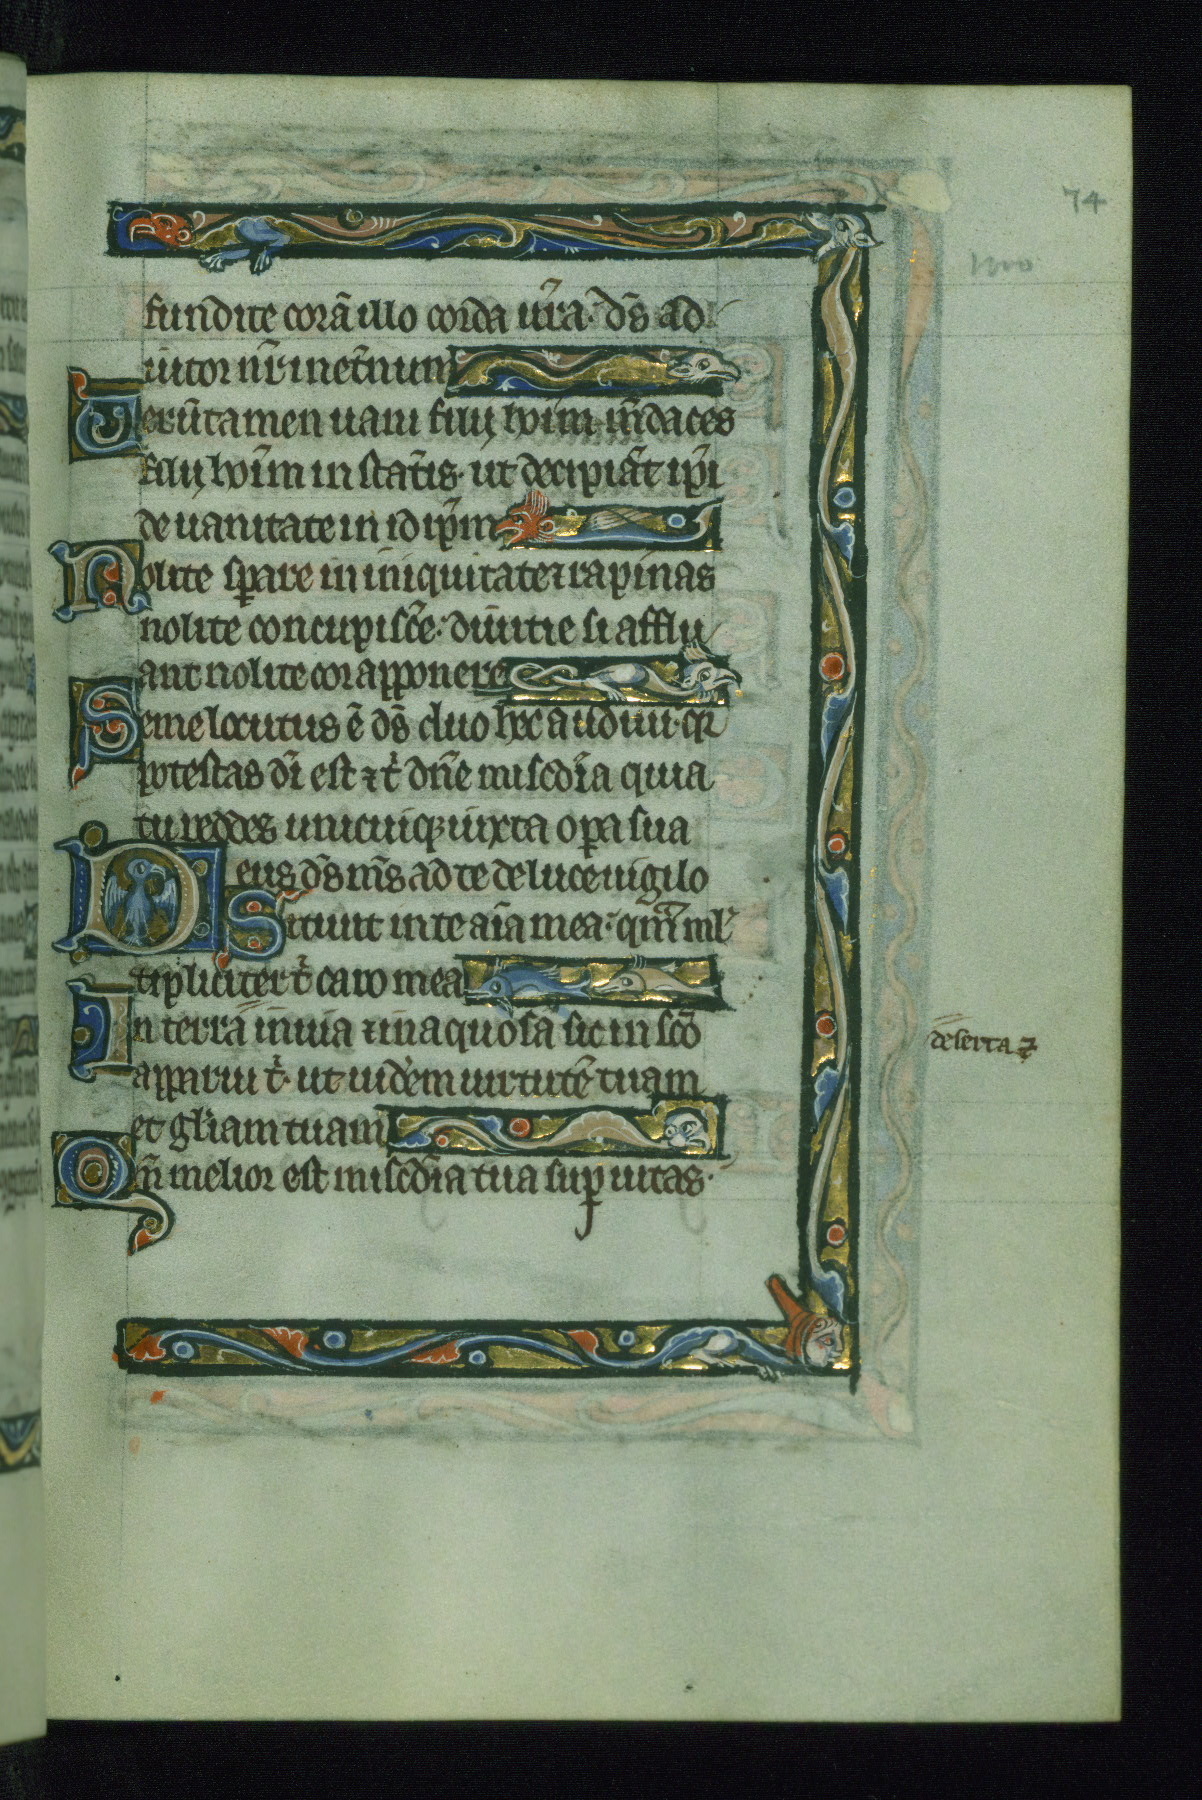 74
fundite corā illo corda ur̄a· dn̄s ad
iutor nr̄ in et̄num
Uerūtamen uani filij hoīm· mn̄daces
filij hoīm in stat̄is· ut decipiāt ip̄i
de uanitate in id ip̄m
Nolite sp̄are in iniquitate ⁊ rapinas
nolite concupisc̄e· diuitie si afflu
ant nolite cor apponere
Semel locutus ē ds̄ duo hec audiui· qr
potestas dī est ⁊ t̄ dn̄e mis̄cdia quia
tu reddes unicuiqꝫ iuxta oꝑa sua
Deus ds̄ ms̄ ad te de luce uigilo
Sitiuit in te aīa mea· qm̄ ml̄
tipliciter t̄ caro mea
In terra inuia ⁊ inaquosa sic in sc̄o
apparui t̄· ut uidēm uirtutē tuam
et glīam tuam
Qm̄ melior est mis̄cdia tua suꝑ uitas·
deserta ⁊